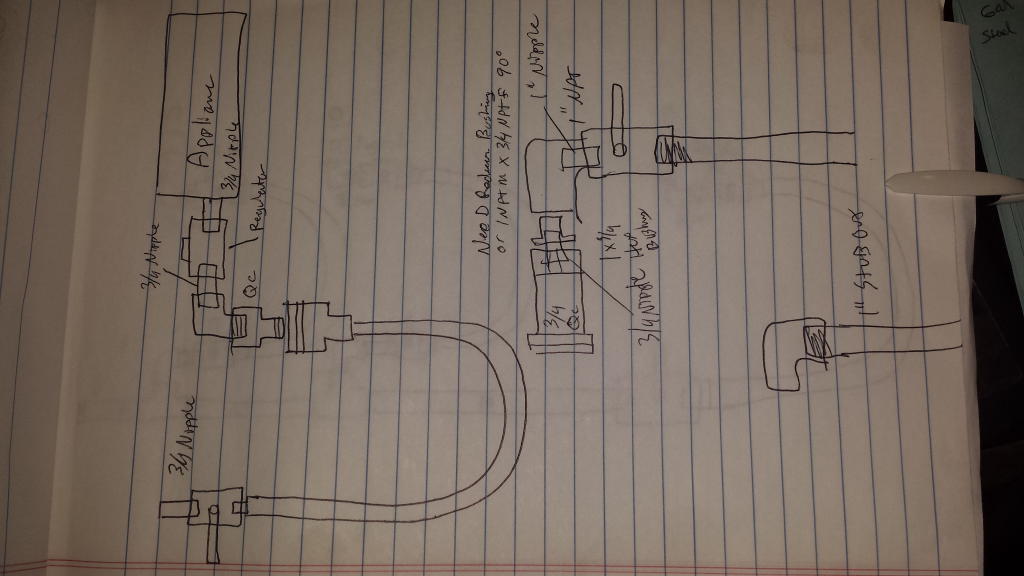 Appliance
3/4 Nipple
3/4 Nipple
Regulator
QC
3/4 Nipple
Need Reducer Bushing
or 1 NPT M x 3/4 NPT F 90°
1" Nipple
1" NPT
1 x 3/4
Hex
Bushing
3/4 Nipple
3/4
QC
1" STUB OUT
Gal
Steel